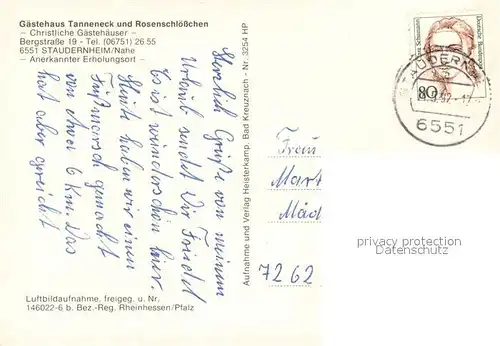 Gästehaus Tanneneck und Rosenschlößchen
– Christliche Gästehäuser –
Bergstraße 19 - Tel. (06751) 26 55
6551 STAUDERNHEIM/Nahe
– Anerkannter Erholungsort –
Herzlich Grüße von meinem
Urlaub sendet Dir Friedel
Es ist wunderschön hier.
Heute haben wir einen
Fußmarsch gemacht
von etwa 6 Km. Das
hat aber gereicht
Luftbildaufnahme, freigeg. u. Nr.
146022-6 b. Bez.-Reg. Rheinhessen/Pfalz
Aufnahme und Verlag Heisterkamp, Bad Kreuznach - Nr. 3254 HP
Deutsche Bundespost
80
6551
Frau
Mart
Mäd
7262
privacy protection
Datenschutz